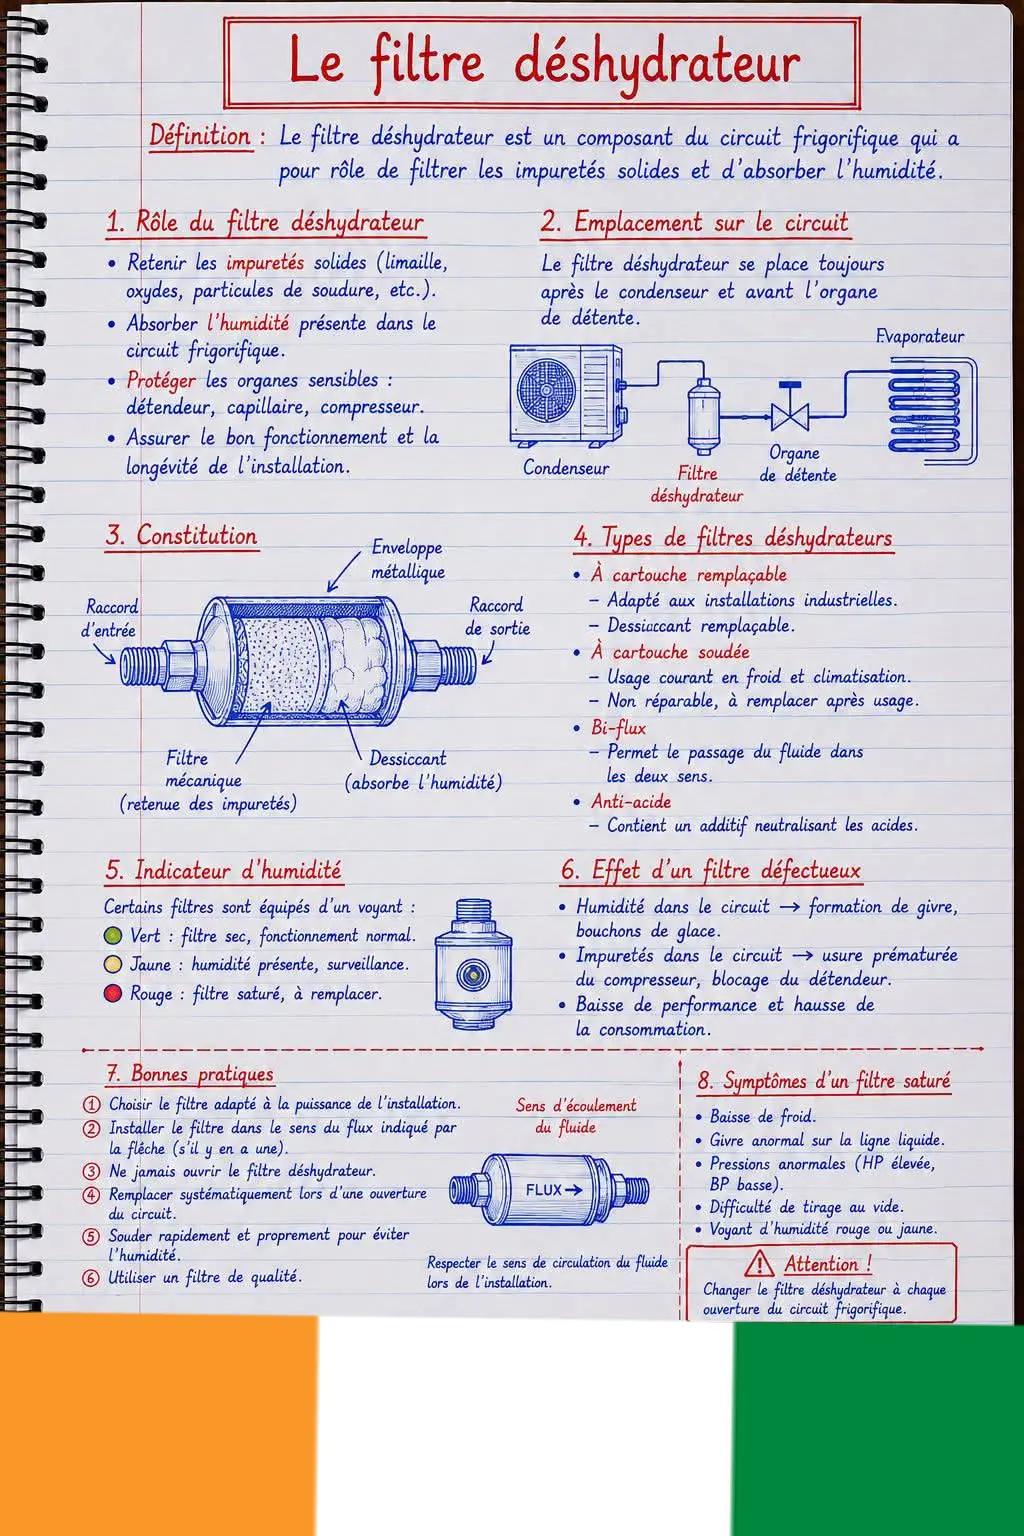 Le filtre déshydrateur
Définition : Le filtre déshydrateur est un composant du circuit frigorifique qui a
pour rôle de filtrer les impuretés solides et d'absorber l'humidité.
1. Rôle du filtre déshydrateur
• Retenir les impuretés solides (limaille,
oxydes, particules de soudure, etc.).
• Absorber l'humidité présente dans le
circuit frigorifique.
• Protéger les organes sensibles :
détendeur, capillaire, compresseur.
• Assurer le bon fonctionnement et la
longévité de l'installation.
2. Emplacement sur le circuit
Le filtre déshydrateur se place toujours
après le condenseur et avant l'organe
de détente.
Evaporateur
Condenseur
Filtre
déshydrateur
Organe
de détente
3. Constitution
Enveloppe
métallique
Raccord
d'entrée
Raccord
de sortie
Filtre
mécanique
(retenue des impuretés)
Dessiccant
(absorbe l'humidité)
4. Types de filtres déshydrateurs
• À cartouche remplaçable
– Adapté aux installations industrielles.
– Dessiccant remplaçable.
• À cartouche soudée
– Usage courant en froid et climatisation.
– Non réparable, à remplacer après usage.
• Bi-flux
– Permet le passage du fluide dans
les deux sens.
• Anti-acide
– Contient un additif neutralisant les acides.
5. Indicateur d'humidité
Certains filtres sont équipés d'un voyant :
Vert : filtre sec, fonctionnement normal.
Jaune : humidité présente, surveillance.
Rouge : filtre saturé, à remplacer.
6. Effet d'un filtre défectueux
• Humidité dans le circuit → formation de givre,
bouchons de glace.
• Impuretés dans le circuit → usure prématurée
du compresseur, blocage du détendeur.
• Baisse de performance et hausse de
la consommation.
7. Bonnes pratiques
① Choisir le filtre adapté à la puissance de l'installation.
② Installer le filtre dans le sens du flux indiqué par
la flêche (s'il y en a une).
③ Ne jamais ouvrir le filtre déshydrateur.
④ Remplacer systématiquement lors d'une ouverture
du circuit.
⑤ Souder rapidement et proprement pour éviter
l'humidité.
⑥ Utiliser un filtre de qualité.
Sens d'écoulement
du fluide
FLUX →
Respecter le sens de circulation du fluide
lors de l'installation.
8. Symptômes d'un filtre saturé
• Baisse de froid.
• Givre anormal sur la ligne liquide.
• Pressions anormales (HP élevée,
BP basse).
• Difficulté de tirage au vide.
• Voyant d'humidité rouge ou jaune.
Attention !
Changer le filtre déshydrateur à chaque
ouverture du circuit frigorifique.